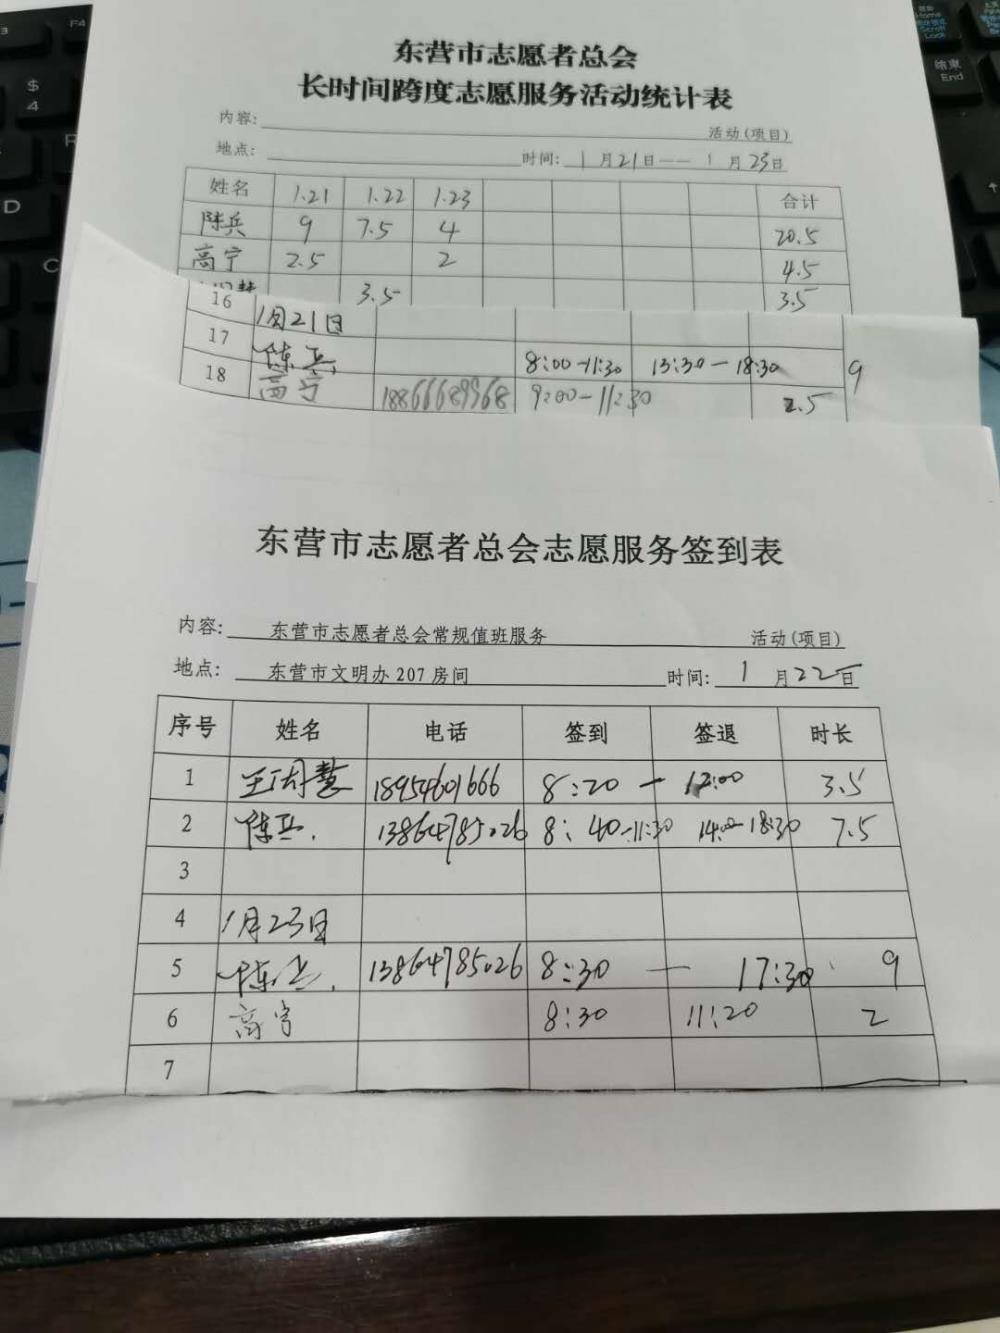 东营市志愿者总会
长时间跨度志愿服务活动统计表
内容: 活动(项目)
地点: 时间: 1月21日——1月23日
姓名 1.21 1.22 1.23 合计
陈兵 9 7.5 4 20.5
高宁 2.5 2 4.5
3.5 3.5
16 1月21日
17 陈兵 8:00-11:30 13:30-18:30 9
18 高宁 18866689968 9:00-11:30 2.5
东营市志愿者总会志愿服务签到表
内容: 东营市志愿者总会常规值班服务 活动(项目)
地点: 东营市文明办207房间 时间: 1月22日
序号 姓名 电话 签到 签退 时长
1 王润慧 18954601666 8:20 — 12:00 3.5
2 陈兵. 13864785026 8:40-11:30 14:00-18:30 7.5
3
4 1月23日
5 陈兵. 13864785026 8:30 — 17:30 9
6 高宁 8:30 11:20 2
7
$
4
F4
R
D
C
Home
Scroll
Lock
结束
End